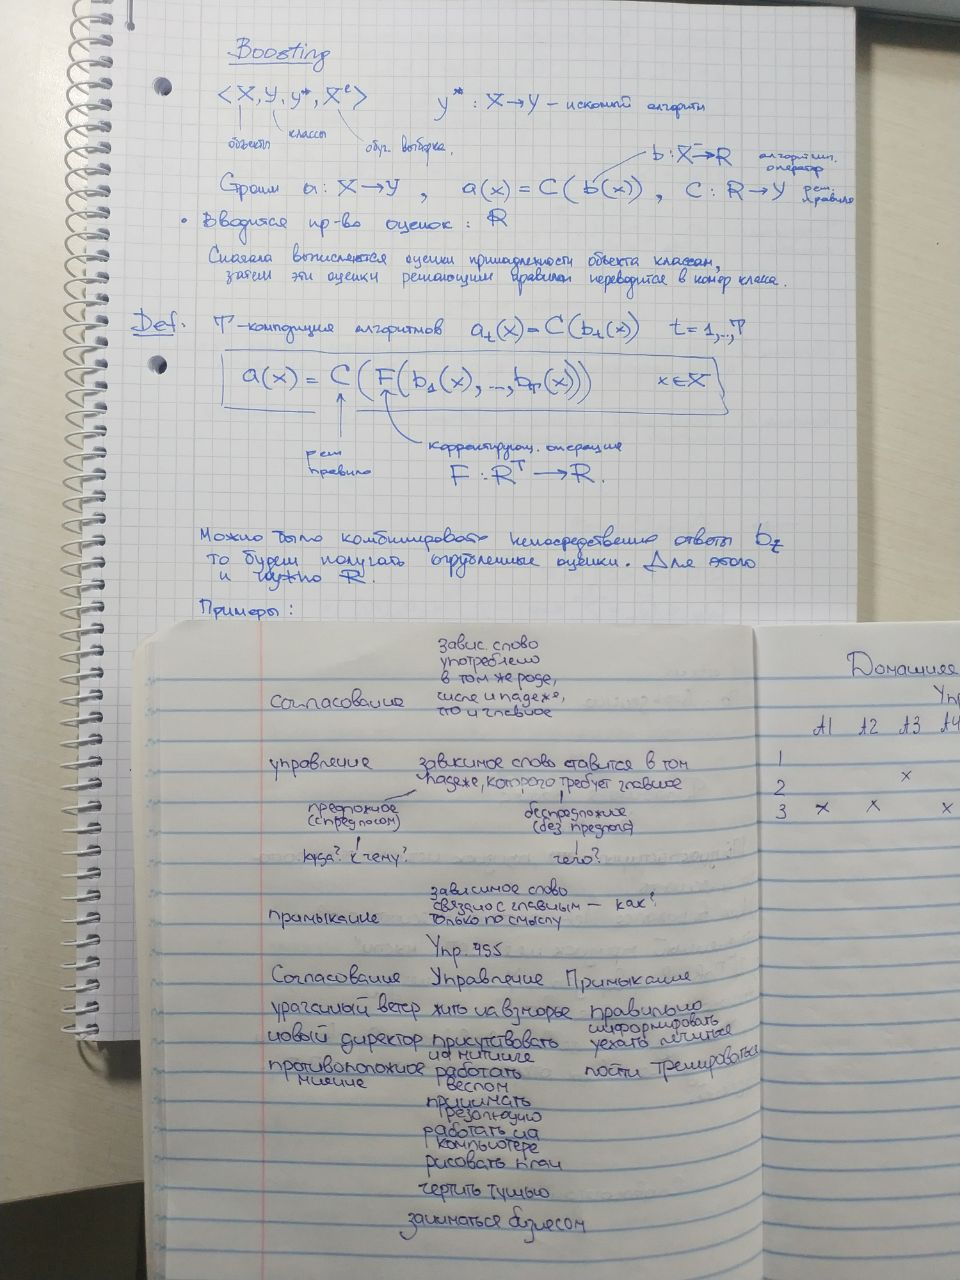 Boosting
<X, Y, y*, Xˡ> y* : X → Y – искомый алгоритм
объекты классы обуч. выборка.
b : X → R алгоритмич. оператор
Строим a : X → Y , a(x) = C(b(x)) , C : R → Y реш. правило
• Вводится пр-во оценок : R
Сначала вычисляются оценки принадлежности объекта классам,
затем эти оценки решающим правилом переводится в номер класса.
Def. T-композиция алгоритмов a_t(x) = C(b_t(x)) t = 1,..,T
a(x) = C(F(b_1(x), ..., b_T(x))) x ∈ X
реш правило
корректирующ. операция
F : R^T → R.
Можно было комбинировать непосредственно ответы b_t
то будем получать огрубленные оценки. Для этого
и нужно R.
Примеры :
завис. слово
употреблено
в том же роде,
Согласование числе и падеже,
что и главное
управление зависимое слово ставится в том
падеже, которого требует главное
предложное беспредложное
(с предлогом) (без предлога)
куда? к чему? чего?
зависимое слово
связано с главным – как?
примыкание только по смыслу
Упр. 455
Согласование Управление Примыкание
ураганный ветер жить на взморье правильно
информировать
новый директор присутствовать уехать лечиться
на митинге
противоположное работать пойти тренироваться
мнение веслом
принимать
резолюцию
работать на
компьютере
рисовать план
чертить тушью
заниматься бизнесом
Домашняя
Упр
A1 A2 A3 A4
1
2 x
3 x x x